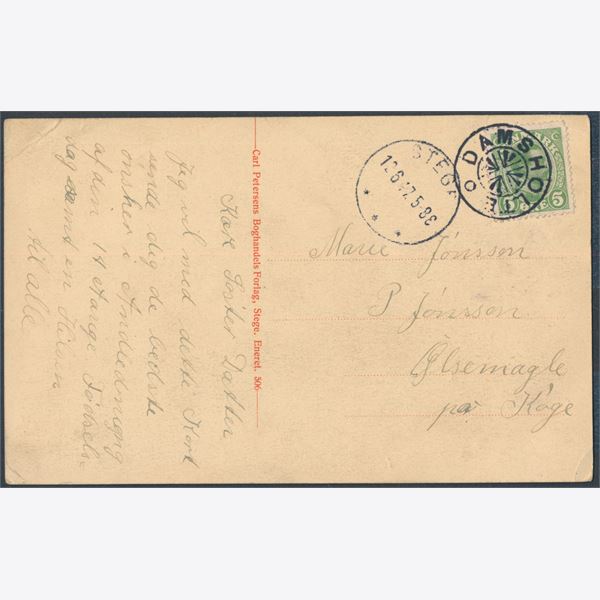 Kære Søster Datter
Jeg vil med dette Kort
sende dig de bedste
ønsker i Andledning
af din 14 aarige Fødsels
dag samt en Hilsen
til alle
Carl Petersens Boghandels Forlag, Stege. Eneret. 506
STEGE
12.6.17. 5-8E
DAMSHOLTE
DANMARK
5
Marie Jønsson
P Jønsson
Ølsemagle
pr Køge